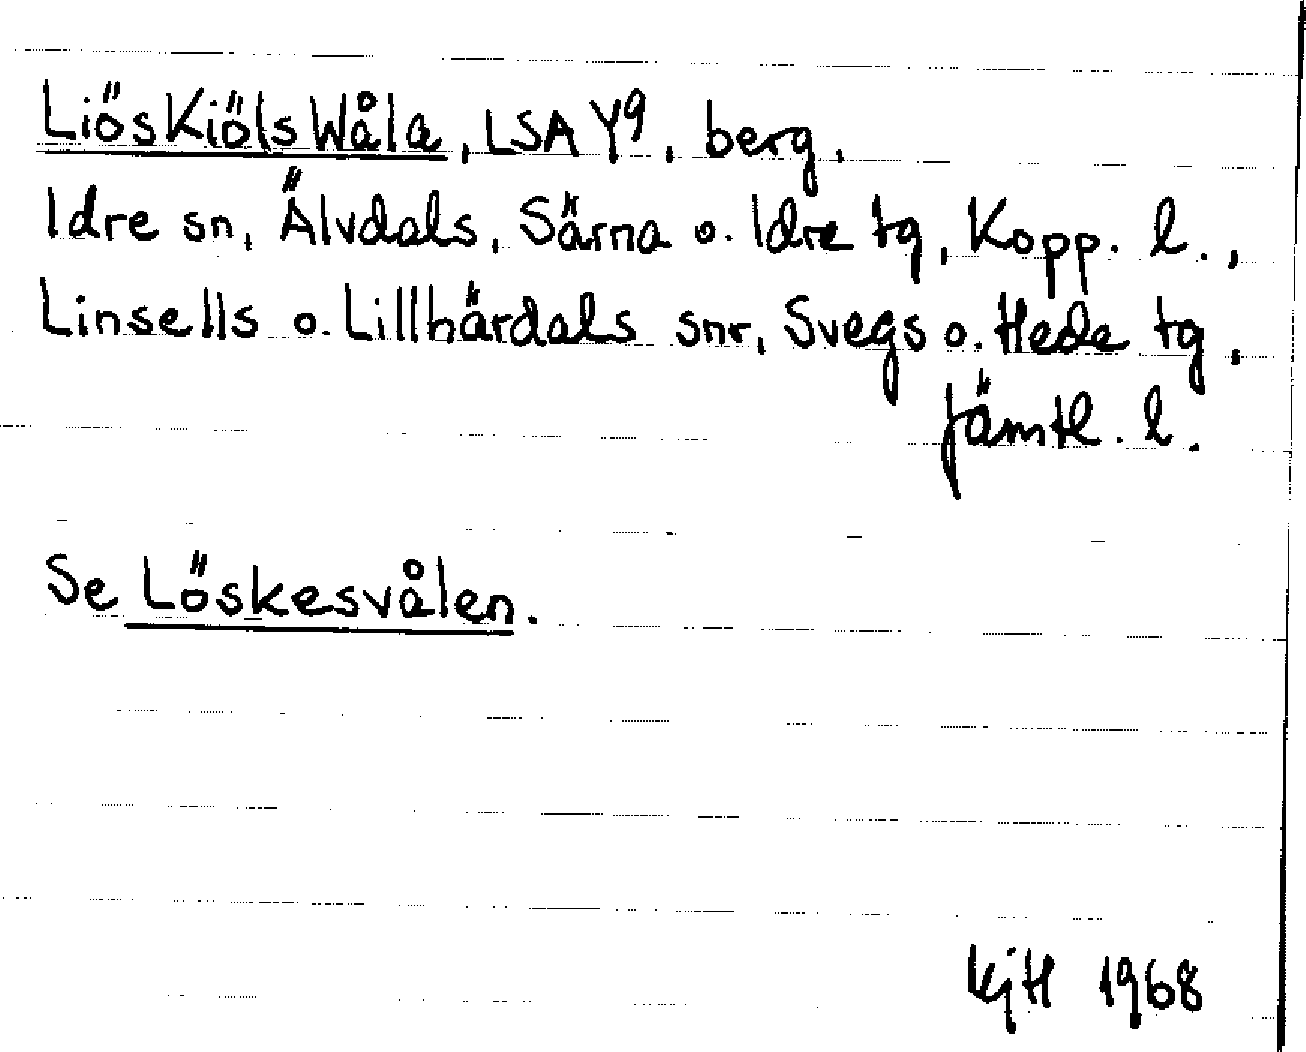 LiösKiölsWåla, LSA Y9, berg,
Idre sn, Älvdals, Särna o. Idre tg, Kopp. l.,
Linsells o. Lillhärdals snr, Svegs o. Hede tg,
Jämtl. l.
Se Löskesvålen.
KjH 1968